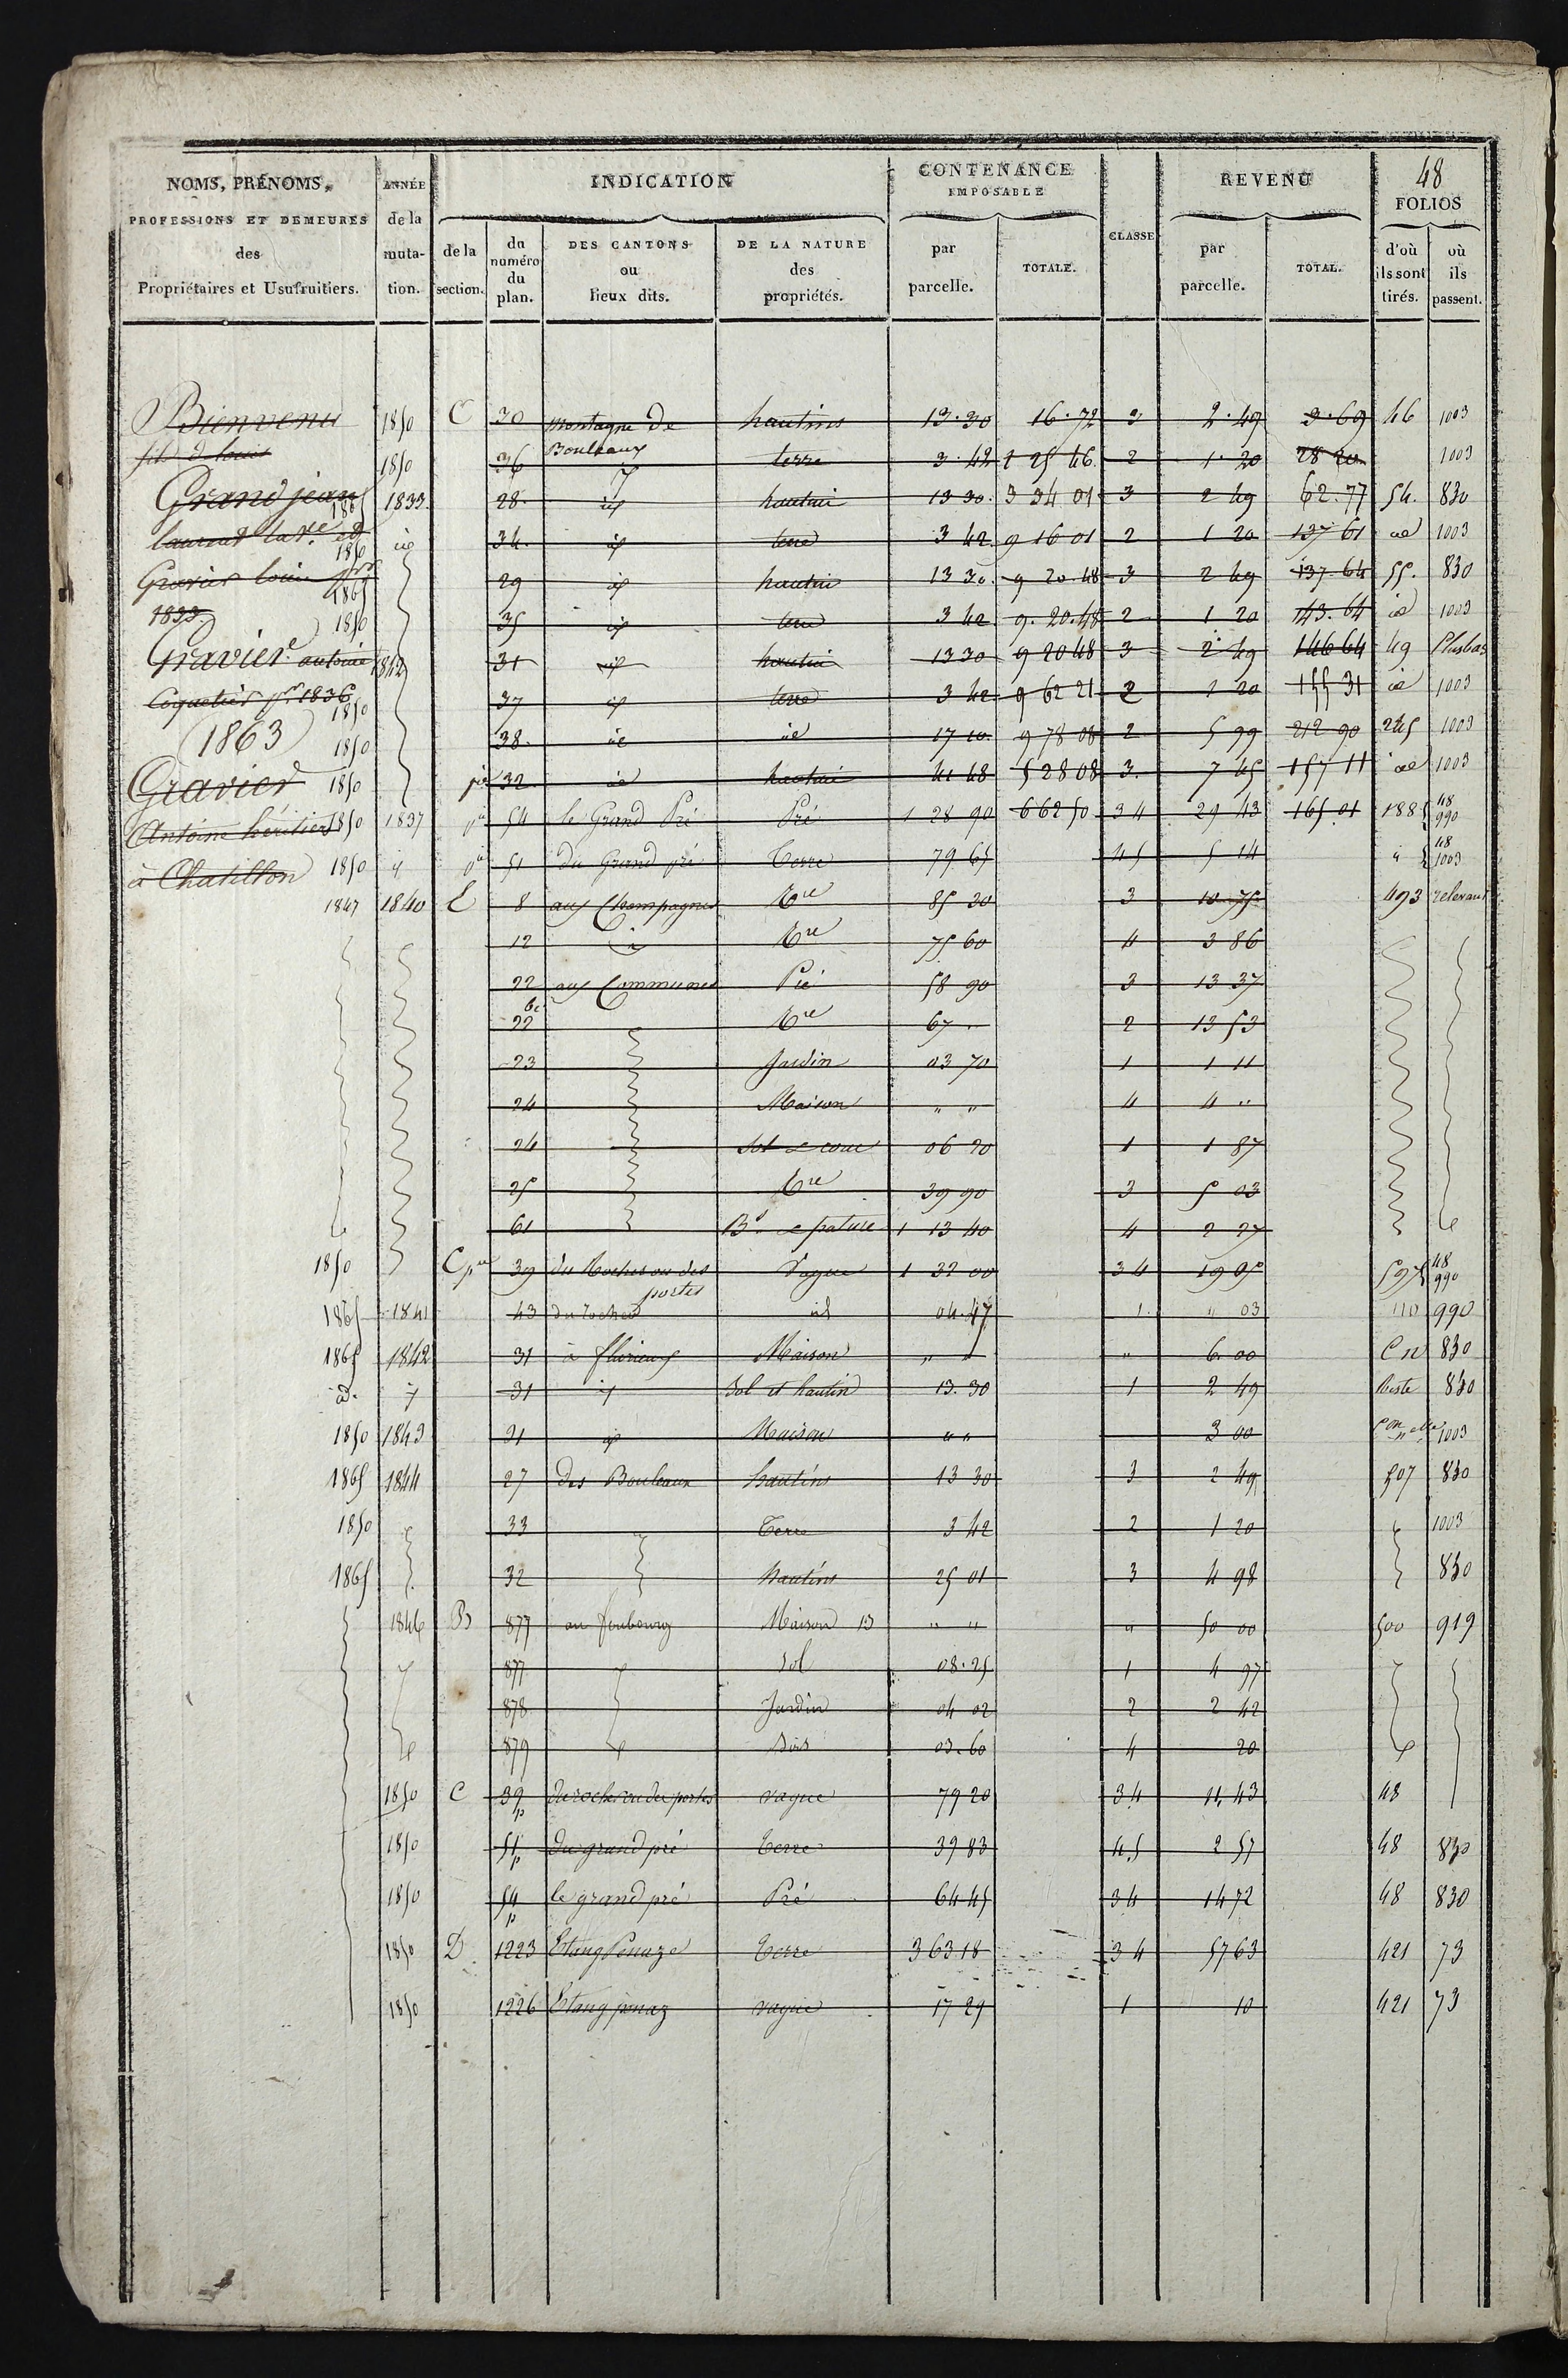 48
NOMS, PRÉNOMS, PROFESSIONS ET DEMEURES des Propriétaires et Usufruitiers.
ANNÉE de la mutation.
INDICATION
de la section.
du numéro du plan.
DES CANTONS ou lieux dits.
DE LA NATURE des propriétés.
CONTENANCE IMPOSABLE
par parcelle.
TOTALE.
CLASSE
REVENU
par parcelle.
TOTAL.
FOLIOS
d'où ils sont tirés.
où ils passent.
Bienvenu
fils de louis
Grand jean
laurent la Ve et
Gravier louis
1833.
Gravier antoine
Coquetier pr 1836
(1863)
Gravier
Antoine héritiers
à Chatillon
1850 C 30 montagne de Bouleaux hautins 13.30 16.72 3 2.49 3.69 46 1003
1850 36 id terre 3.42 1 25 46 2 1.20 28 20 1003
1865 1833 28. id hautin 13 30. 3 34 01 3 2 49 62.77 54. 830
1850 id 34. id terre 3 42. 9 16 01 2 1 20 137 61 id 1003
1865 29 id hautin 13 30. 9 20.48 3 2 49 137.64 55. 830
1850 35 id terre 3 42 9.20.48 2 1 20 143.64 id 1003
1842 31 id hautin 13 30 9 20 48 3 2 49 146 64 49 Plusbas
1850 37 id terre 3 42 9 62 21 2 1 20 155 31 id 1003
1850 38. id id 17 10 9 78 08 2 5 99 212 90 245 1003
1850 pie 32 id hautin 41 48 5 28 08 3. 7 45 157 11 id 1003
1850 1837 pie 54 le Grand Pré Pré 1 28 90 6 62 50 3 4 29 43 165.01 188 48 990
1850 id pie 51 du Grand pré Terre 79 65 4 5 5 14 " 48 1003
1847 1840 E 8 aux Champagnes Tre 85 30 3 10 75 493 relevant
12 id Tre 75 60 4 3 86
22 aux Communes Pré 58 90 3 13 37
22 bis Tre 67 " 2 13 53
23 Jardin 03 70 1 1 11
24 Maison " " 4 4 "
24 Sol et cour 06 20 1 1 87
25 Tre 39 90 3 5 03
61 Bs et pature 1 13 40 4 2 27
1850 C pie 39 du Rocher ou des portes Vague 1 32 00 3 4 19 05 597 48 990
1865 1841 43 du rocher id 04.47 1. " 03 110 990
1865 1842 31 à flurieux Maison " " " 6.00 Cn 830
id. id 31 id Sol et hautin 13.30 1 2 49 Reste 830
1850 1843 31 id Maison " " 3 00 Con nelle 1003
1865 1844 27 des Bouleaux hautins 13 30 3 2 49 507 830
1850 33 Terre 3 42 2 1 20 1003
1865 32 hautins 25 01 3 4 98 830
1846 B 877 au faubourg Maison 13 " " " 50 00 500 919
877 Sol 08.25 1 4 97
878 Jardin 04 02 2 2 42
879 Bois 03.60 4 20
1850 C 39p du rocher ou des portes vague 79 20 3 4 11,43 48
1850 51p du grand pré Terre 39 83 4.5 2 57 48 830
1850 54p le grand pré Pré 64 45 3 4 14 72 48 830
1850 D 1223 Etang Penaze Terre 3 63 18 3 4 57 63 421 73
1850 1226 Etang penaz vague 17 29 1 10 421 73